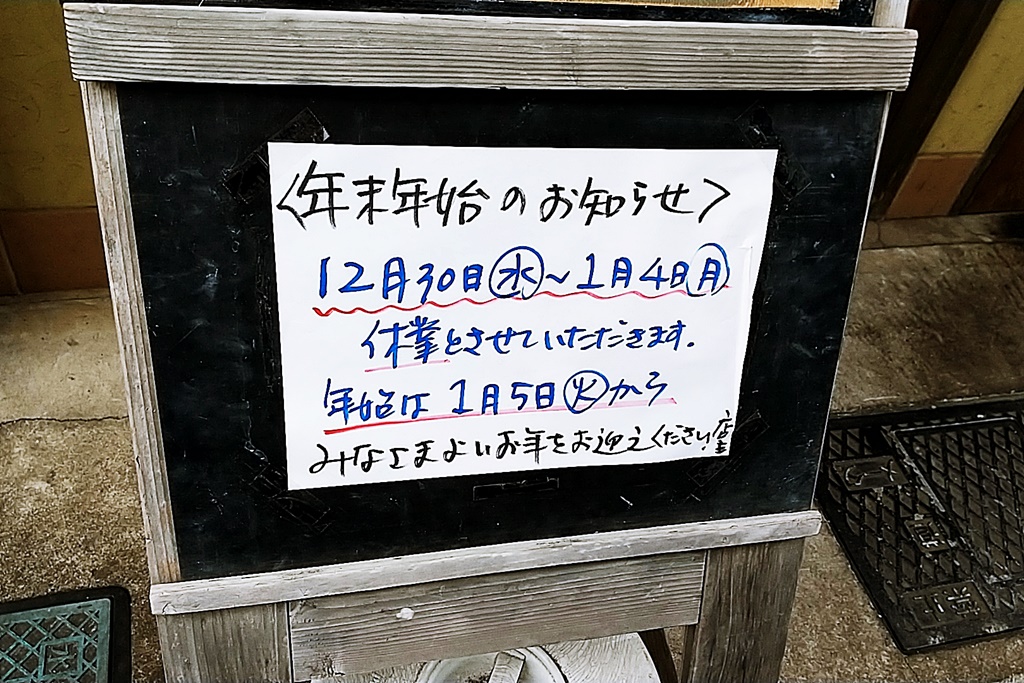 〈年末年始のお知らせ〉
12月30日㊌~1月4日㊊
休業とさせていただきます.
年始は1月5日㊋から
みなさまよいお年をお迎えください!